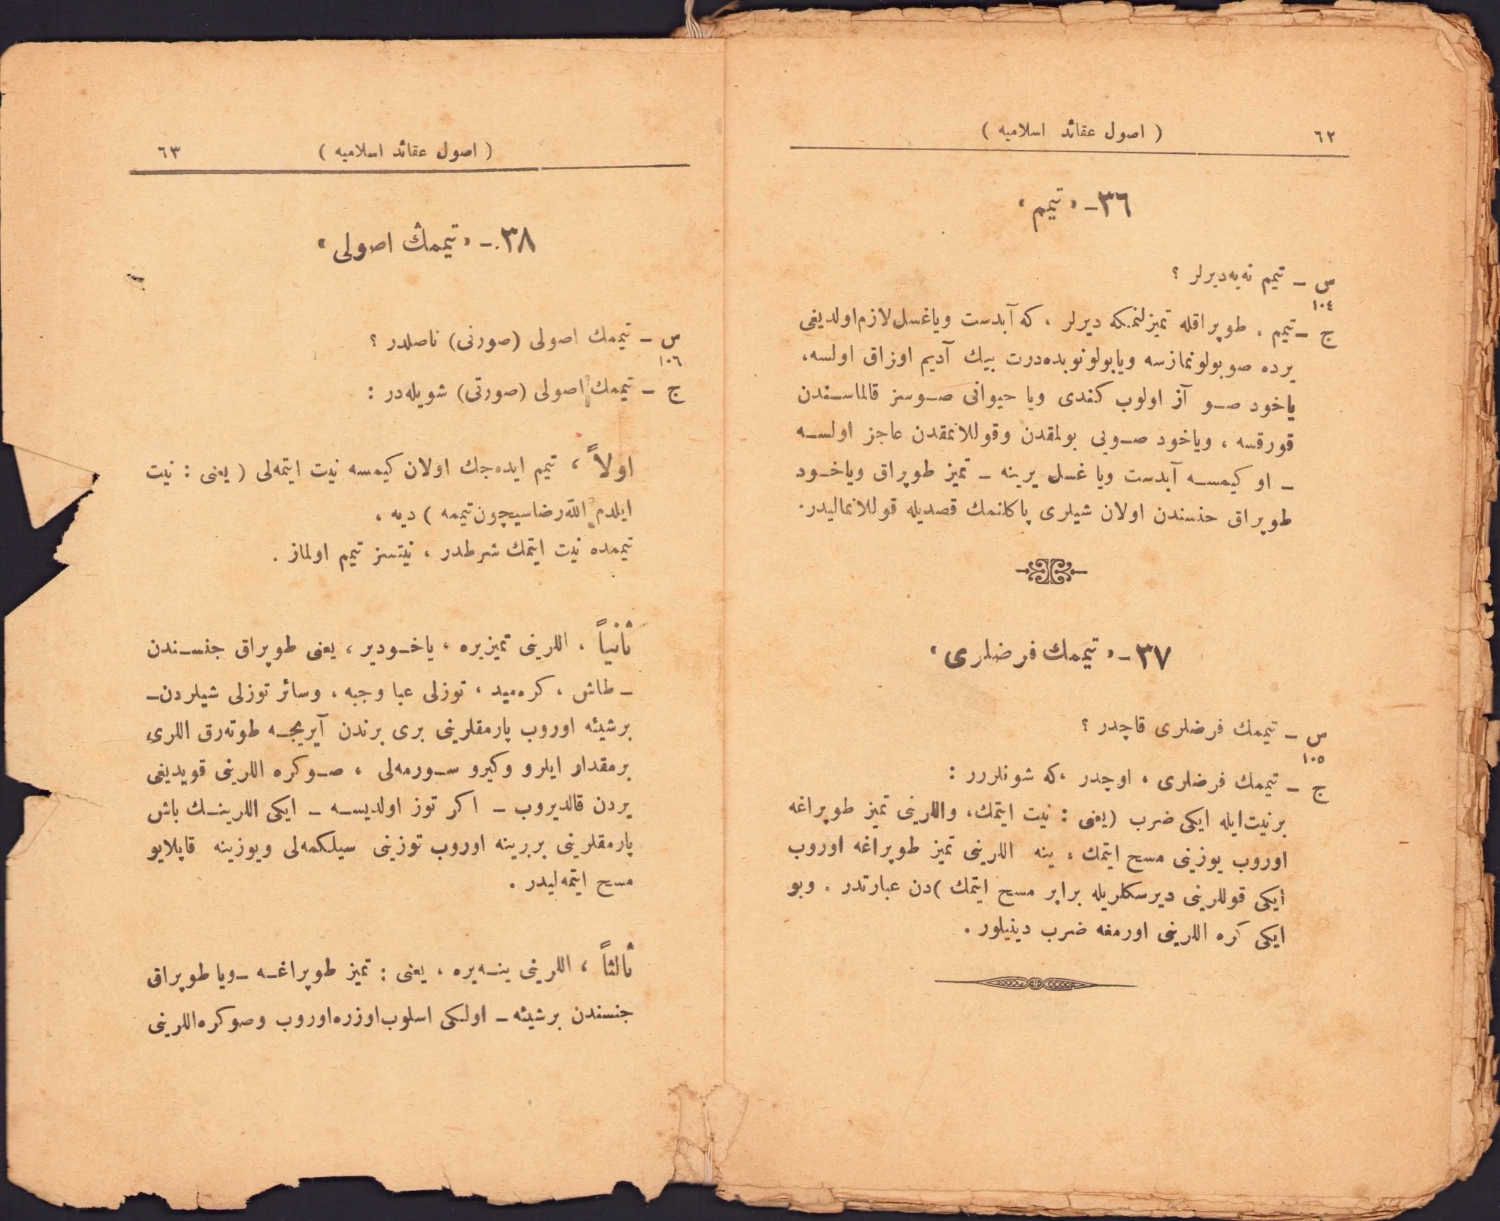 ٦٢
( اصول عقائد اسلاميه )
٣٦ـ « تيمم »
س ـ تيمم نه‌يه‌ ديرلر ؟
١٠٤
ج ـ تيمم ، طوپراقله تميزلنمكه ديرلر ، كه آبدست وياغسل لازم اولديغی
يرده صوبولونمازسه ويابولونوبده درت بيك آديم اوزاق اولسه،
ياخود صو آز اولوب كندی ويا حيوانی صوسز قالماسندن
قورقسه ، وياخود صويی بولمقدن وقوللانمقدن عاجز اولسه
ـ او كيمسه آبدست ويا غسل يرينه ـ تميز طوپراق وياخود
طوپراق جنسندن اولان شيلری پاكلنمك قصديله قوللانماليدر.
٣٧ـ « تيممك فرضلری »
س ـ تيممك فرضلری قاچدر ؟
١٠٥
ج ـ تيممك فرضلری ، اوچدر ،كه شونلردر :
برنيت‌ايله ايكی ضرب (يعنی : نيت ايتمك، واللرينی تميز طوپراغه
اوروب يوزينی مسح ايتمك ، ينه اللرينی تميز طوپراغه اوروب
ايكی قوللرينی ديرسكلريله برابر مسح ايتمك )دن عبارتدر . وبو
ايكی كره اللرينی اورمغه ضرب دينيلور .
( اصول عقائد اسلاميه )
٦٣
٣٨ـ « تيممك اصولی »
س ـ تيممك اصولی (صورتی) ناصلدر ؟
١٠٦
ج ـ تيممك اصولی (صورتی) شويله‌در :
اولاً ، تيمم ايده‌جك اولان كيمسه نيت ايتمه‌لی ( يعنی : نيت
ايلدم الله رضاسيچون تيممه ) ديه ،
تيممده نيت ايتمك شرطدر ، نيتسز تيمم اولماز .
ثانياً ، اللرينی تميزيره ، ياخودير ، يعنی طوپراق جنسندن
ـ طاش ، كره‌ميد ، توزلی عبا وجبه ، وسائر توزلی شيلردن ـ
برشيئه اوروب پارمقلرينی بری برندن آيريجه طوته‌رق اللری
برمقدار ايلرو وكيرو سورمه‌لی ، صوكره اللرينی قويديغی
يردن قالديروب ـ اكر توز اولديسه ـ ايكی اللرينك باش
پارمقلرينی بربرينه اوروب توزينی سيلكمه‌لی ويوزينه قاپلايو
مسح ايتمه‌ليدر .
ثالثاً ، اللرينی ينه‌يره ، يعنی : تميز طوپراغه ـ ويا طوپراق
جنسندن برشيئه ـ اولكی اسلوب اوزره اوروب وصوكره اللرينی